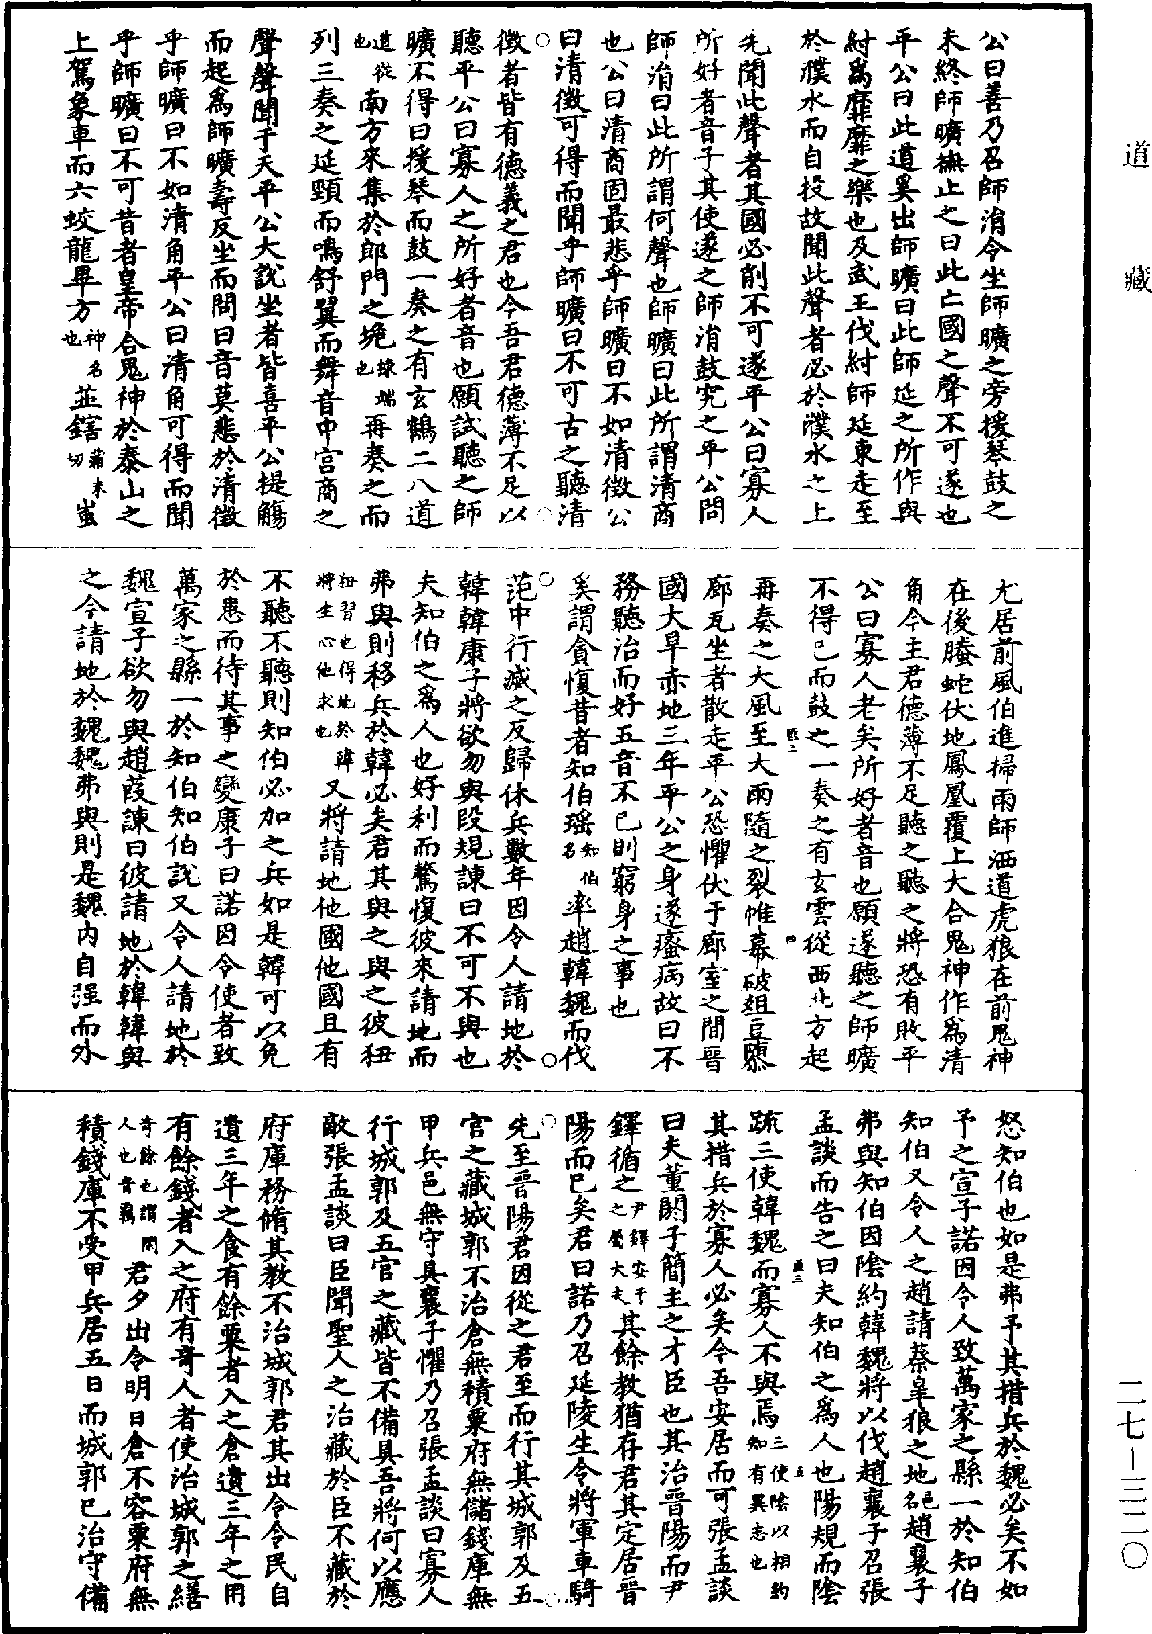 道藏
公曰善乃召師涓令坐師曠之旁援琴鼓之
未終師曠撫止之曰此亡國之聲不可遂也
平公曰此道奚出師曠曰此師延之所作與
紂爲靡靡之樂也及武王伐紂師延東走至
於濮水而自投故聞此聲者必於濮水之上
先聞此聲者其國必削不可遂平公曰寡人
所好者音子其使遂之師涓鼓究之平公問
師涓曰此所謂何聲也師曠曰此所謂清商
也公曰清商固最悲乎師曠曰不如清徵公
曰清徵可得而聞乎師曠曰不可古之聽清
徵者皆有德義之君也今吾君德薄不足以
聽平公曰寡人之所好者音也願試聽之師
曠不得曰援琴而鼓一奏之有玄鶴二八道
道從也南方來集於郎門之垝棟端也再奏之而
列三奏之延頸而鳴舒翼而舞音中宮商之
聲聲聞于天平公大說坐者皆喜平公提觴
而起爲師曠壽反坐而問曰音莫悲於清徵
乎師曠曰不如清角平公曰清角可得而聞
乎師曠曰不可昔者皇帝合鬼神於泰山之
上駕象車而六蛟龍畢方神名也並鎋蒲末切蚩
尤居前風伯進掃雨師洒道虎狼在前鬼神
在後螣蛇伏地鳳凰覆上大合鬼神作爲清
角今主君德薄不足聽之聽之將恐有敗平
公曰寡人老矣所好者音也願遂聽之師曠
不得已而鼓之一奏之有玄雲從西北方起
再奏之大風至大雨隨之裂帷幕破俎豆隳
廊瓦坐者散走平公恐懼伏于廊室之間晉
國大旱赤地三年平公之身遂癃病故曰不
務聽治而好五音不已則窮身之事也
奚謂貪愎昔者知伯瑶知伯名率趙韓魏而伐
范中行滅之反歸休兵數年因令人請地於
韓韓康子將欲勿與段規諫曰不可不與也
夫知伯之爲人也好利而驁愎彼來請地而
弗與則移兵於韓必矣君其與之與之彼狃
狃習也得地於韓將生心他求也又將請地他國他國且有
不聽不聽則知伯必加之兵如是韓可以免
於患而待其事之變康子曰諾因令使者致
萬家之縣一於知伯知伯說又令人請地於
魏宣子欲勿與趙葭諫曰彼請地於韓韓與
之今請地於魏魏弗與則是魏內自强而外
怒知伯也如是弗予其措兵於魏必矣不如
予之宣子諾因令人致萬家之縣一於知伯
知伯又令人之趙請蔡皐狼之地邑名趙襄子
弗與知伯因陰約韓魏將以伐趙襄子召張
孟談而告之曰夫知伯之爲人也陽規而陰
疏三使韓魏而寡人不與焉三使陰以相約知有異志也
其措兵於寡人必矣今吾安居而可張孟談
曰夫董閼子簡主之才臣也其治晉陽而尹
鐸循之尹鐸安于之屬大夫其餘教猶存君其定居晉
陽而已矣君曰諾乃召延陵生令將軍車騎
先至晉陽君因從之君至而行其城郭及五
官之藏城郭不治倉無積粟府無儲錢庫無
甲兵邑無守具襄子懼乃召張孟談曰寡人
行城郭及五官之藏皆不備具吾將何以應
敵張孟談曰臣聞聖人之治藏於臣不藏於
府庫務脩其教不治城郭君其出令令民自
遺三年之食有餘粟者入之倉遺三年之用
有餘錢者入之府有奇人者使治城郭之繕
奇餘也謂閑人也音羈君夕出令明日倉不容粟府無
積錢庫不受甲兵居五日而城郭已治守備
二七—三二〇